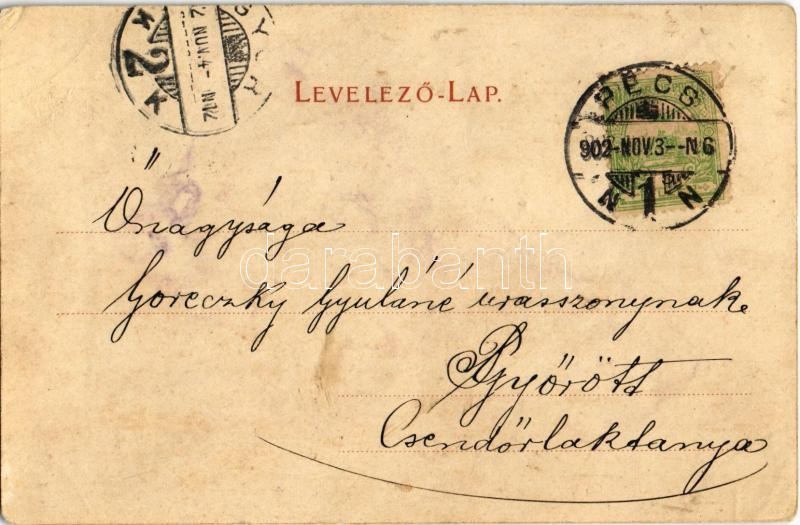 GYŐR
2
LEVELEZŐ-LAP.
PÉCS
902-NOV.3--N.6
N 1 N
Őnagysága
Goreczky Gyuláné úrasszonynak
Győrött
Csendőrlaktanya
darabanth